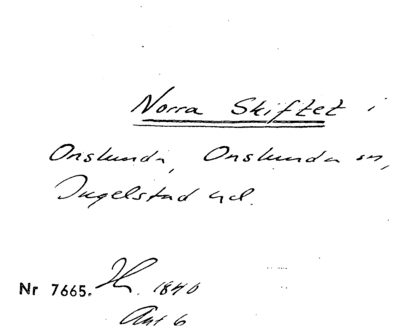 Norra Skiftet i
Onslunda, Onslunda sn,
Ingelstad hd.
Nr 7665. 1840
Ant 6